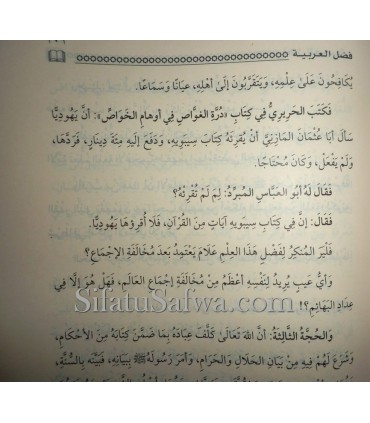 فضل العربية
يُكَافِحُونَ عَلَى عِلْمِهِ، وَيَتَقَرَّبُونَ إِلَى أَهْلِهِ، عِيَانًا وَسَمَاعًا.
فَكَتَبَ الحَرِيرِيُّ فِي كِتَابِ «دُرَّةِ الغَوَّاصِ فِي أَوهَامِ الخَوَاصِّ»: أَنَّ يَهُودِيًّا
سَأَلَ أَبَا عُثْمَانَ المَازِنِيَّ أَنْ يُقْرِئَهُ كِتَابَ سِيبَوَيهِ، وَدَفَعَ إِلَيهِ مِئَةَ دِينَارٍ، فَرَدَّهَا،
وَلَمْ يَفْعَلْ، وَكَانَ مُحْتَاجًا.
فَقَالَ لَهُ أَبُو العَبَّاسِ المُبَرِّدُ: لِمَ لَمْ تُقْرِئْهُ؟
فَقَالَ: إِنَّ فِي كِتَابِ سِيبَوَيهِ آيَاتٍ مِنَ القُرْآنِ، فَلَا أُقْرِؤُهَا يَهُودِيًّا.
فَلْيَرَ المُنْكِرُ لِفَضْلِ هَذَا العِلْمِ عَلَامَ يَعْتَمِدُ بَعْدَ مُخَالَفَةِ الإِجْمَاعِ؟
وَأَيُّ عَيبٍ يُرِيدُ لِنَفْسِهِ أَعْظَمُ مِنْ مُخَالَفَةِ إِجْمَاعِ العَالَمِ، فَهَلْ هُوَ إِلَّا فِي
عِدَادِ البَهَائِمِ؟!
SilatuSafwa.com
وَالحُجَّةُ الثَّالِثَةُ: أَنَّ اللهَ تَعَالَى كَلَّفَ عِبَادَهُ بِمَا ضَمَّنَ كِتَابَهُ مِنَ الأَحْكَامِ،
وَشَرَعَ لَهُمْ فِيهِ مِنْ بَيَانِ الحَلَالِ وَالحَرَامِ، وَأَمَرَ رَسُولَهُ ﷺ بِبَيَانِهِ، فَبَيَّنَهُ بِالسُّنَّةِ،